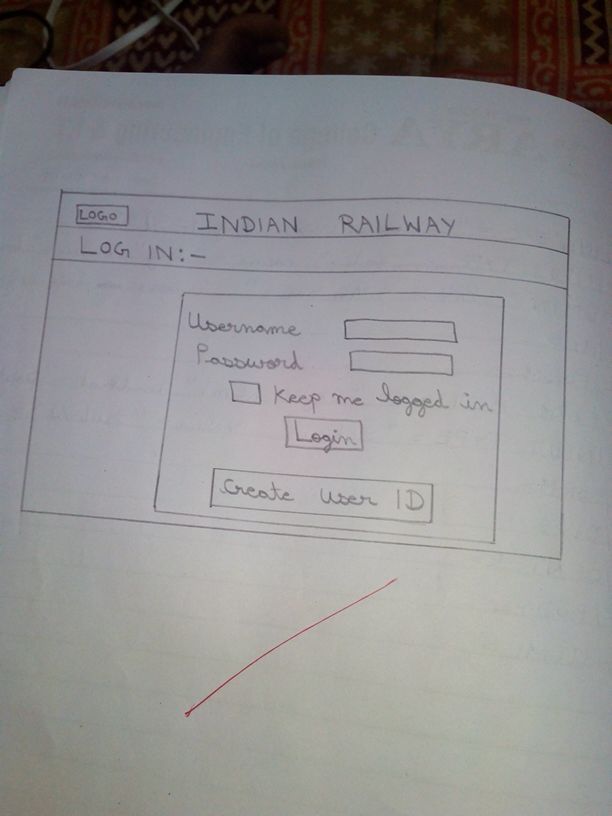 LOGO INDIAN RAILWAY
LOG IN:-
Username
Password
Keep me logged in
Login
Create User ID